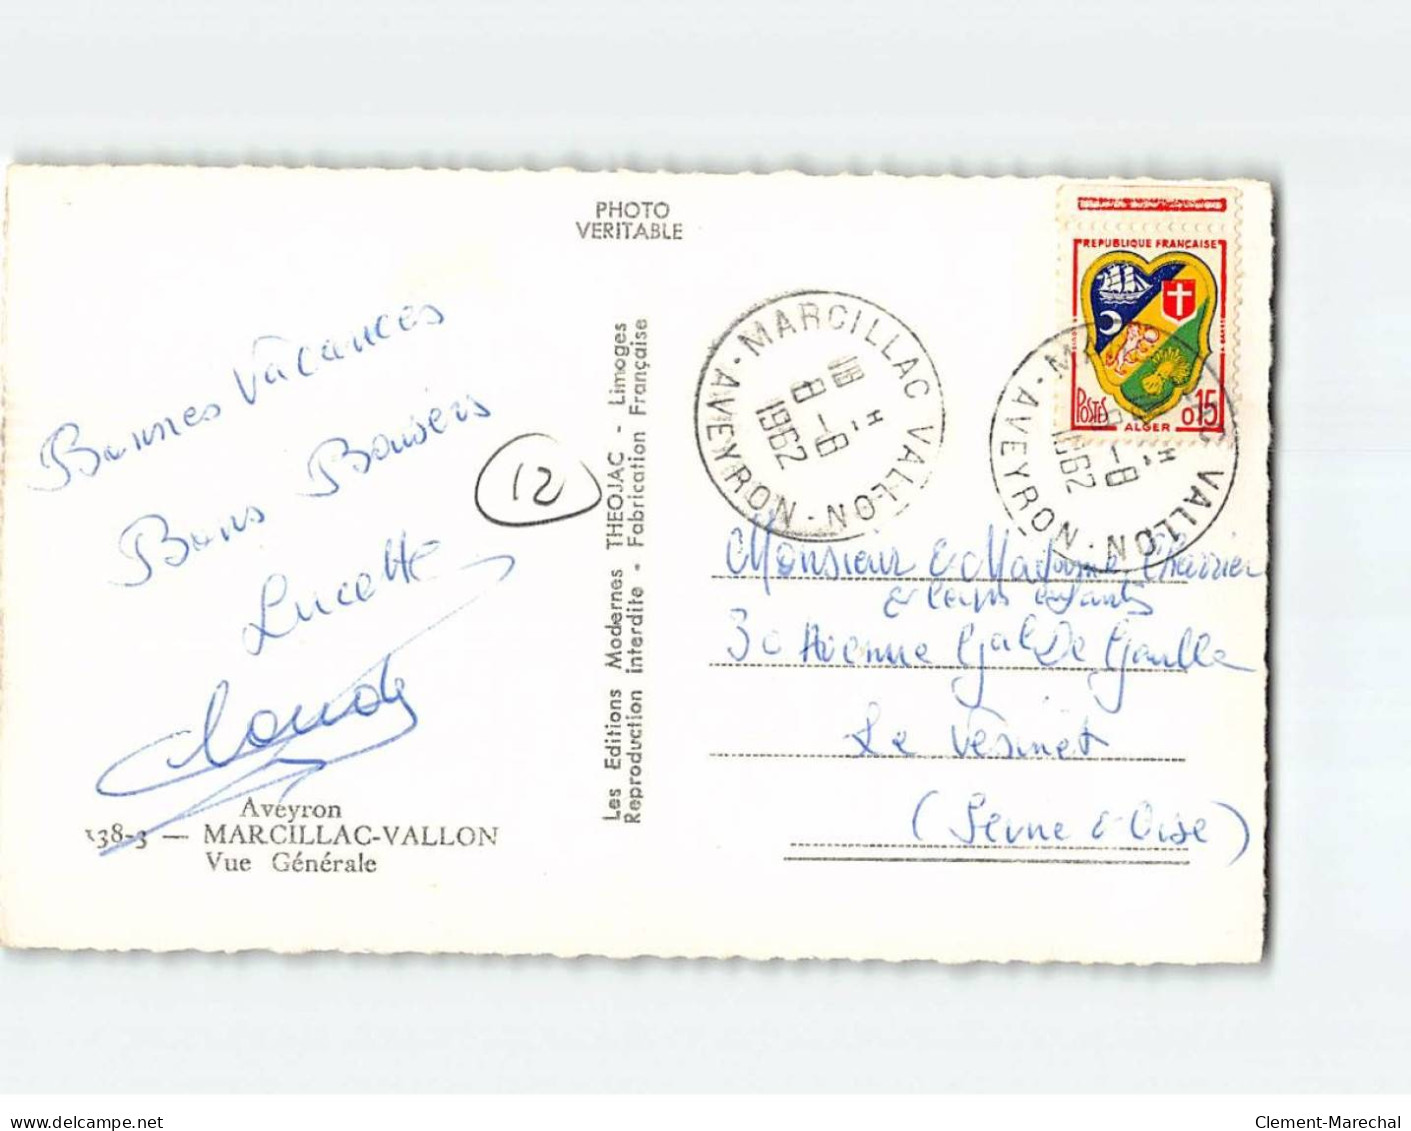 PHOTO
VERITABLE
REPUBLIQUE FRANÇAISE
POSTES
ALGER
0,15
MARCILLAC VALLON · AVEYRON ·
18 H
8-8
1962
VALLON · AVEYRON · M
H
-8
1962
Bonnes Vacances
Bons Baisers
Lucette
Claude
12
Les Editions Modernes THEOJAC - Limoges
Reproduction interdite - Fabrication Française
Monsieur & Madame Charrier
& leurs enfants
30 Avenue Gal De Gaulle
Le Vésinet
(Seine & Oise)
Aveyron
338-3 — MARCILLAC-VALLON
Vue Générale
www.delcampe.net
Clement-Marechal